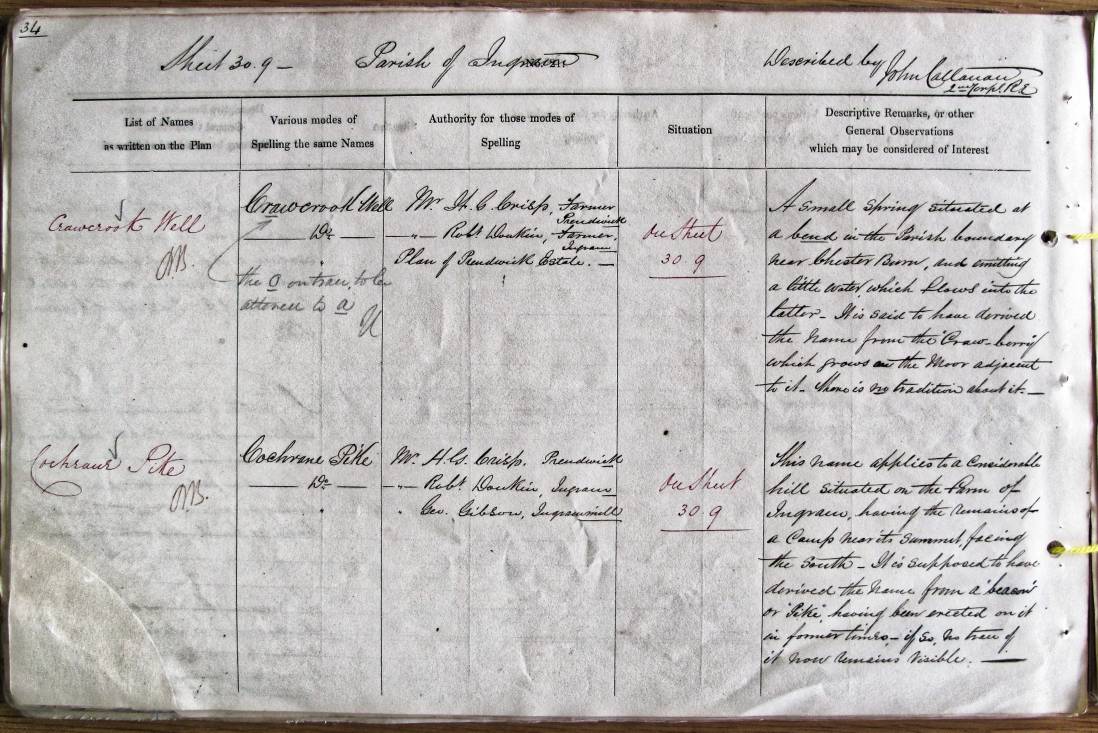 34
Sheet 30.9 - Parish of Ingram Described by John Callanan
2nd Corpl. R.E
List of Names
as written on the Plan
Various modes of
Spelling the same Names
Authority for those modes of
Spelling
Situation
Descriptive Remarks, or other
General Observations
which may be considered of Interest
Crawcrook Well
Crawcrook Well
Do.
the o on trace, to be
altered to a
Mr. H. G. Crisp, Farmer
Prendwick
" Robt. Donkin, Farmer,
Ingram
Plan of Prendwick Estate. -
On Sheet
30 9
A Small Spring Situated at
a bend in the Parish boundary
near Chester Burn, and emitting
a little water, which flows into the
latter - It is said to have derived
the Name from the "Craw-berry"
which grows on the Moor adjacent
to it - There is no tradition about it. -
Cochrane Pike
Cochrane Pike
Do.
"
Mr. H. G. Crisp. Prendwick
" Robt. Donkin, Ingram
" Geo. Gibson, Ingrammill
On Sheet
30 9
This name applies to a Considerable
hill situated on the Farm of
Ingram, having the remains of
a Camp near its Summit, facing
the South - It is supposed to have
derived the Name from a 'beacon'
or 'Pike', having been erected on it
in former times - if so, no trace of
it now remains visible. -